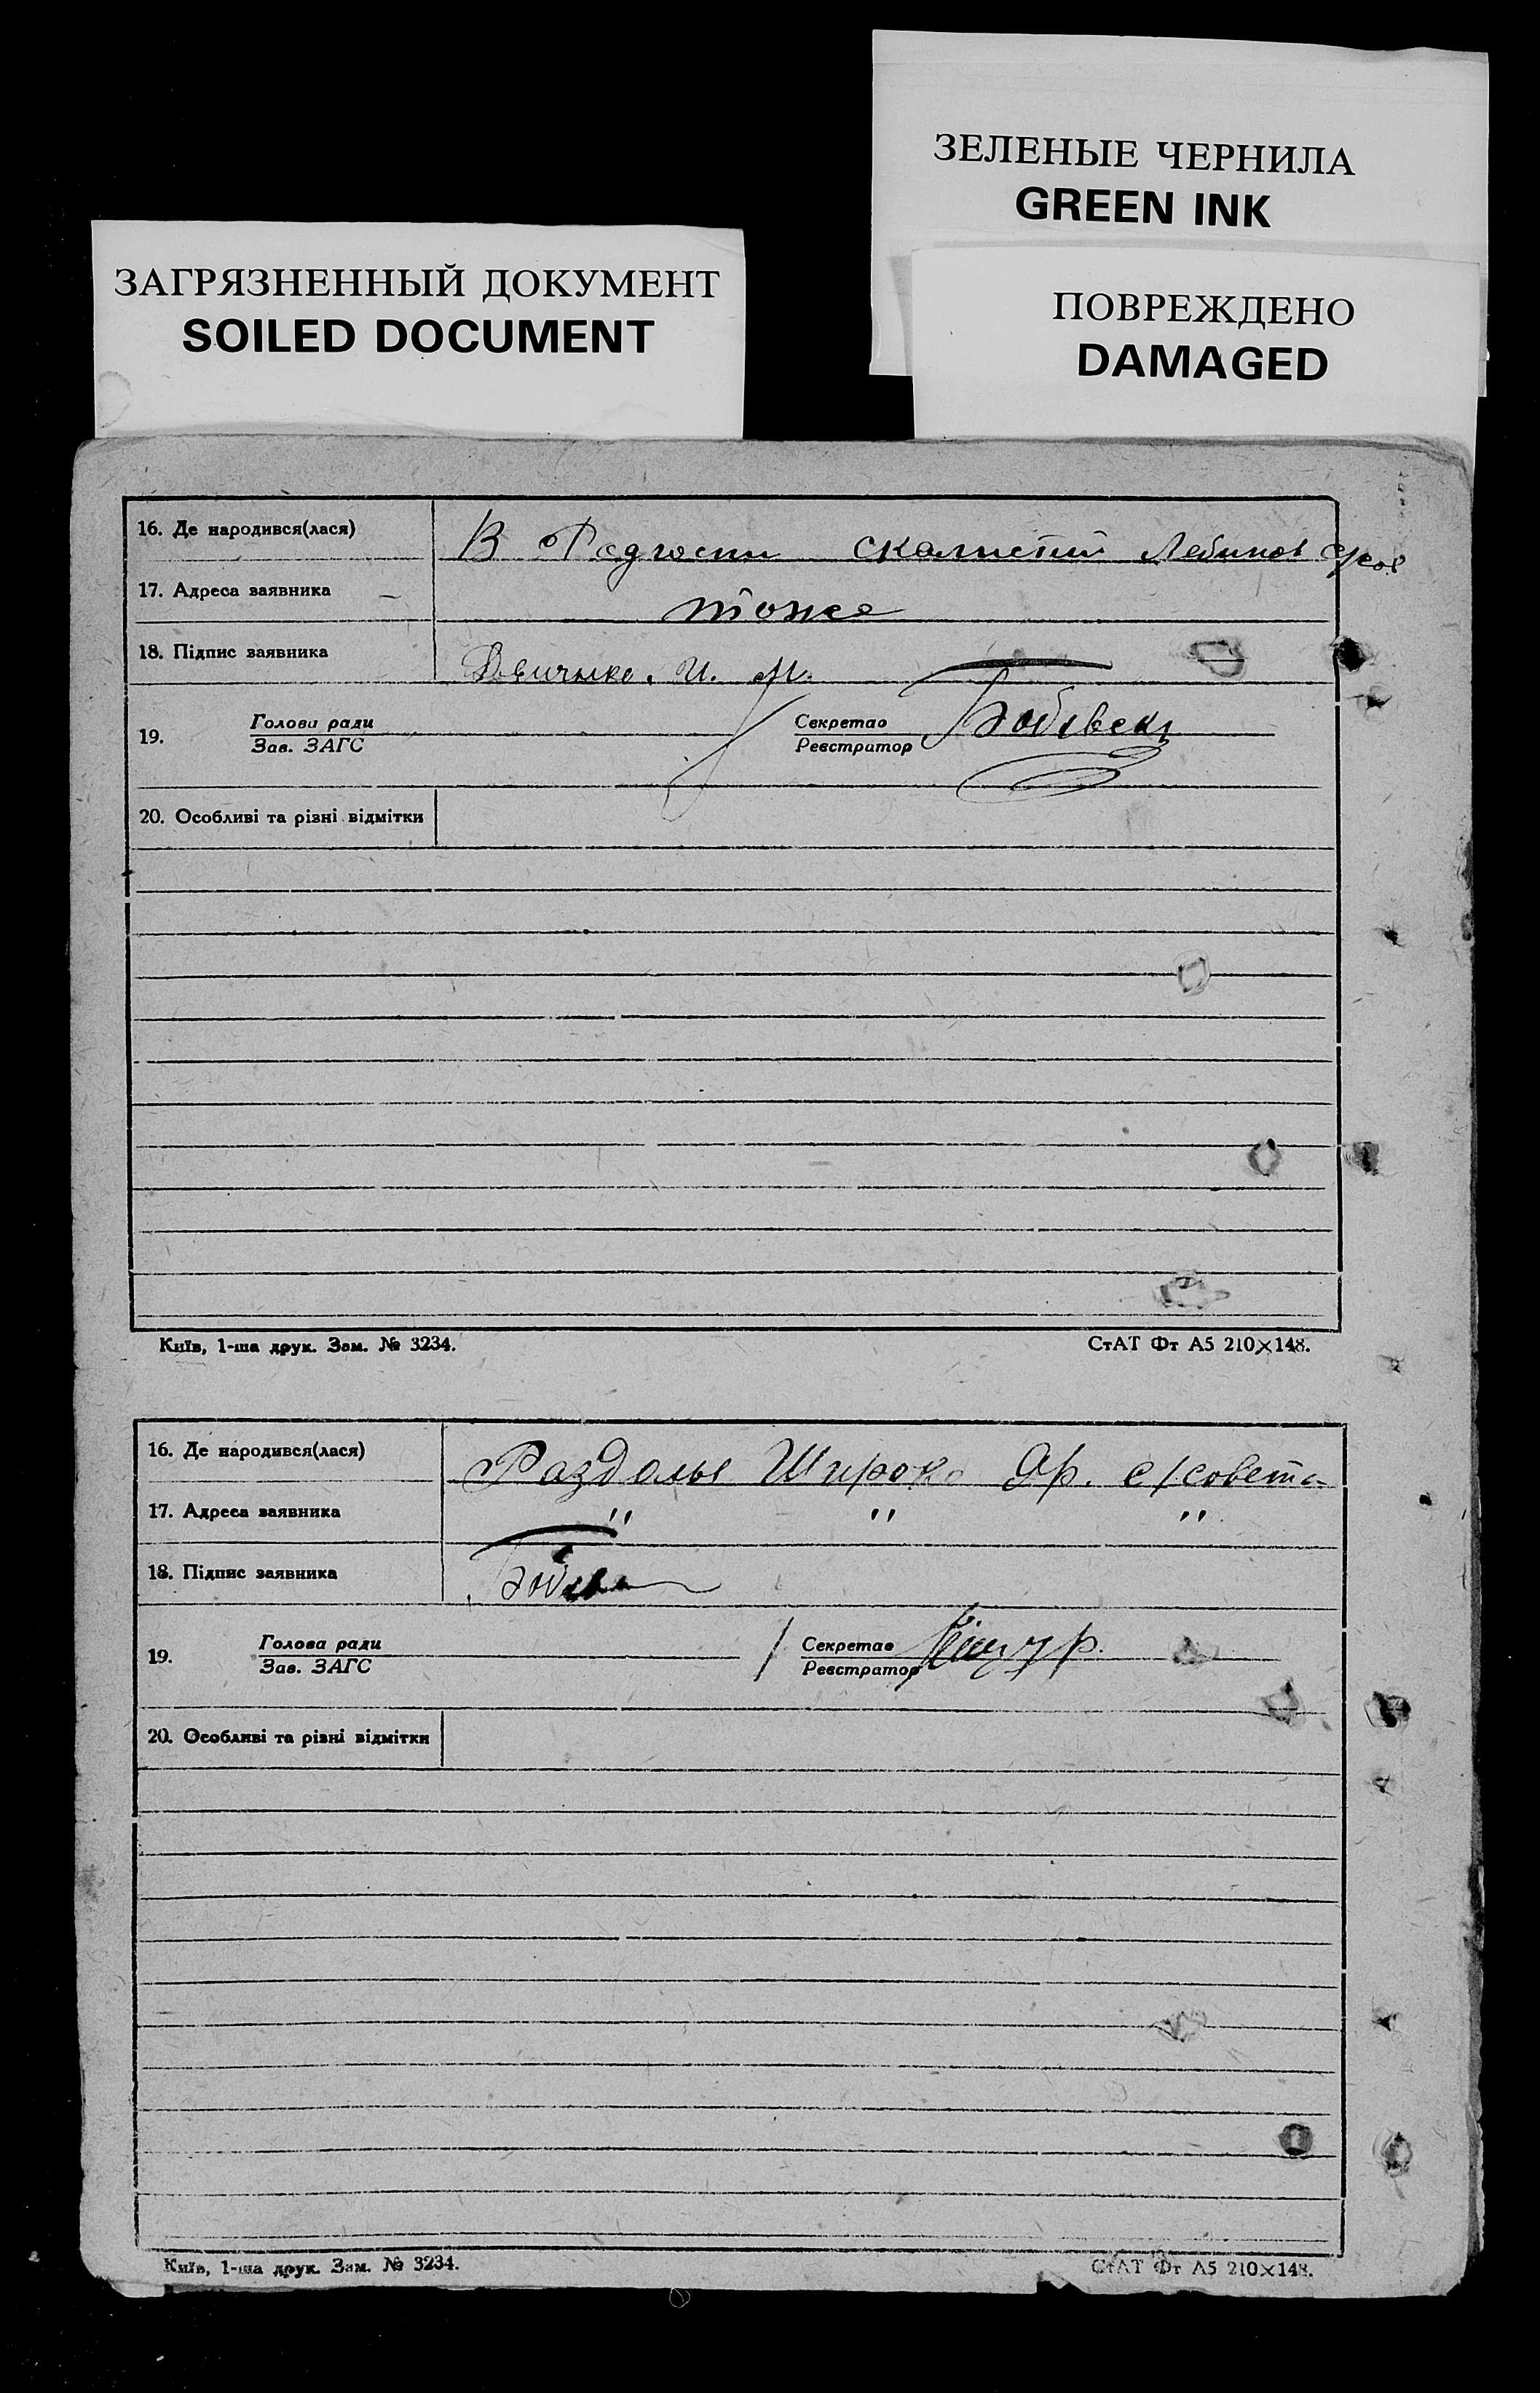 ЗЕЛЕНЫЕ ЧЕРНИЛА
GREEN INK
ЗАГРЯЗНЕННЫЙ ДОКУМЕНТ
SOILED DOCUMENT
ПОВРЕЖДЕНО
DAMAGED
16. Де народився(лася) В скалистий
17. Адреса заявника тоже
18. Підпис заявника И. М.
19. Голова ради Секретар
Зав. ЗАГС Реєстратор
20. Особливі та різні відмітки
Київ, 1-ша друк. Зам. № 3234. СтАТ Фт А5 210×148.
16. Де народився(лася) Раздолье Широко Яр. с/совета
17. Адреса заявника " " "
18. Підпис заявника
19. Голова ради Секретар
Зав. ЗАГС Реєстратор
20. Особливі та різні відмітки
Київ, 1-ша друк. Зам. № 3234. СтАТ Фт А5 210×148.